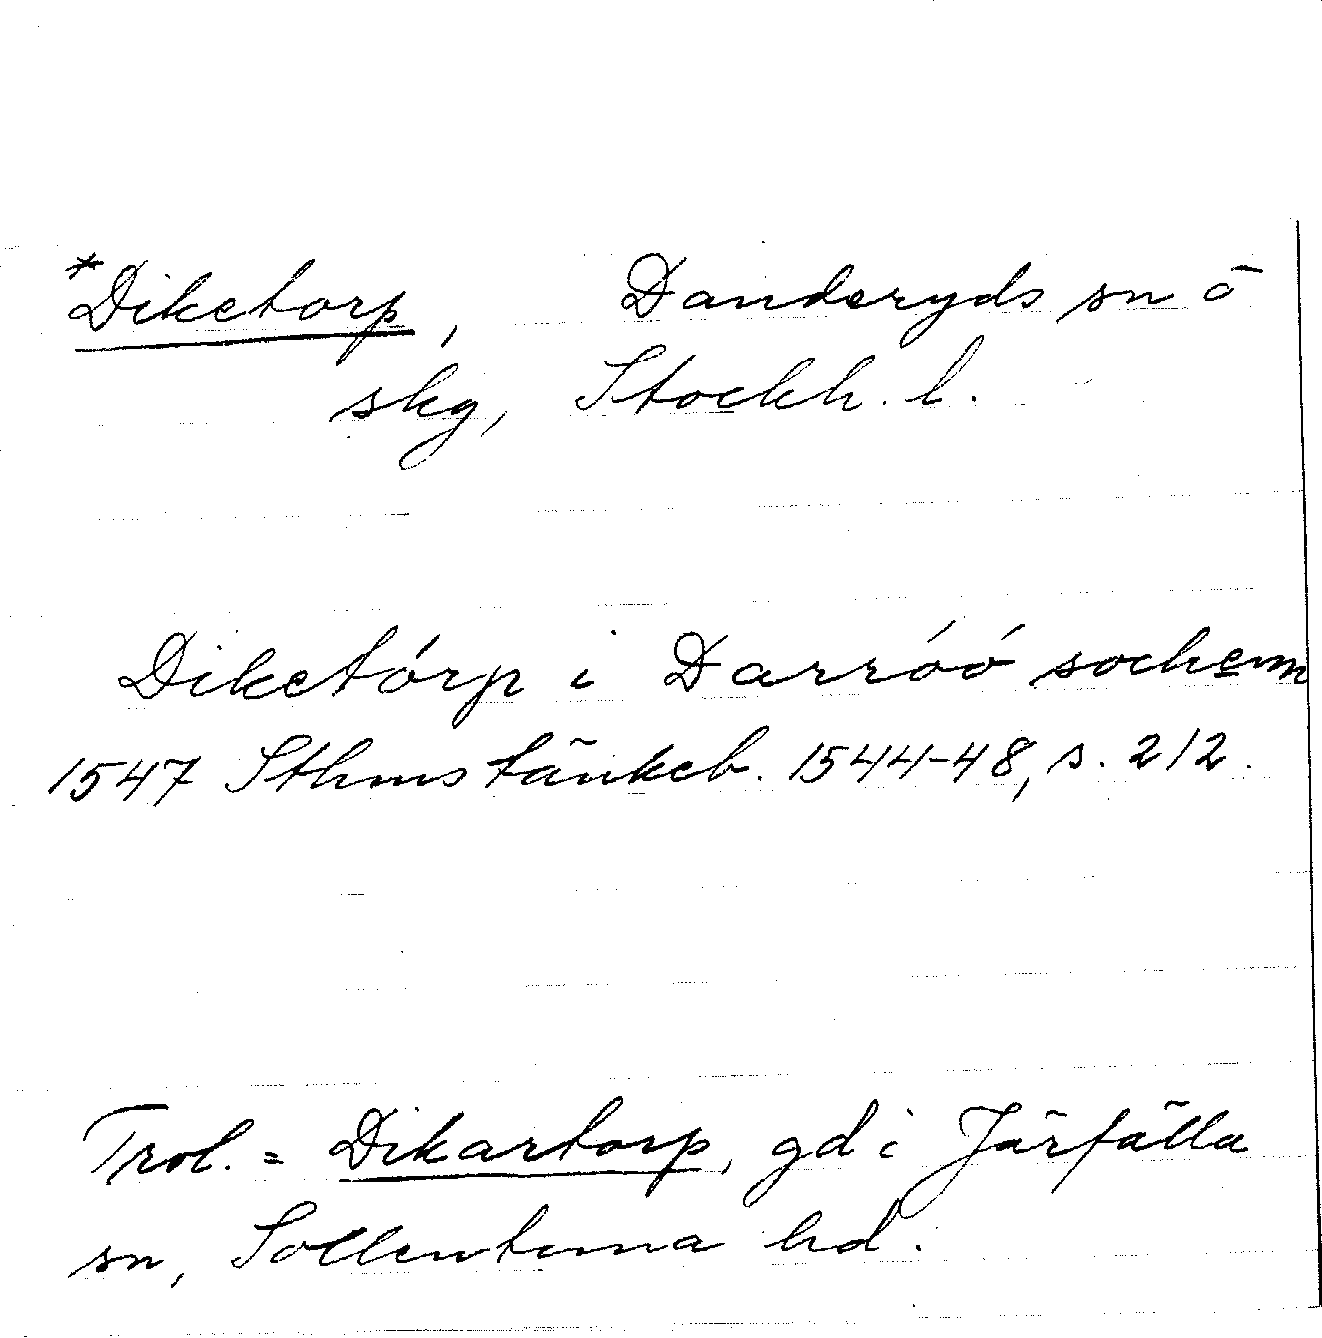 *Diketorp, Danderyds sn ö
skg, Stockh. l.
Diketórp i Darróó sochenn
1547 Sthms tänkeb. 1544-48, s. 212.
Trol. = Dikartorp, gd i Järfälla
sn, Sollentuna hd.